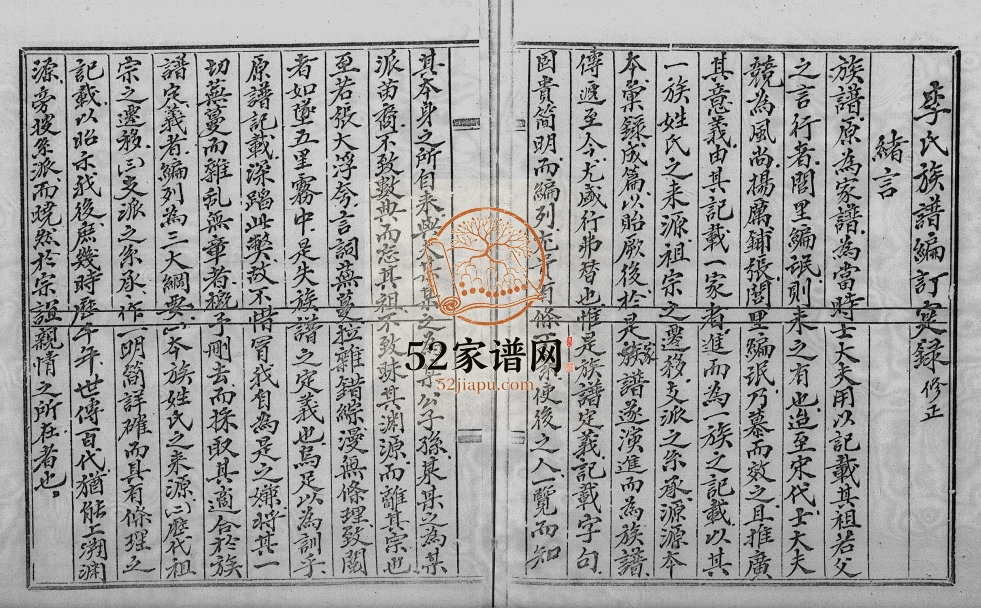 李氏族譜編訂定錄 修正
緒言
族譜原為家譜為當時士大夫用以記載其祖若父
之言行者閭里編氓則未之有也迨至宋代士大夫
競為風尚揚厲鋪張閭里編氓乃慕而效之且推廣
其意義由其記載一家者進而為一族之記載以其
一族姓氏之来源祖宗之遷移支派之系承源源本
本彙錄成篇以貽厥後於是家族譜遂演進而為族譜
傳遞至今尤盛行弗替也惟是族譜定義記載字句
固貴簡明而編列 使後之人一覽而知
其本身之所自来與 某之為某公子孫某某之為某
派苗裔不致數典而忘其祖不致昧其淵源而離其宗也
至若張大浮夸言詞蕪蔓拉雜錯綜漫無條理致閱
者如墮五里霧中是失族譜之定義也烏足以為訓乎
原譜記載深蹈此弊故不惜冒我自為是之嫌將其一
切蕪蔓而雜亂無章者概予刪去而採取其適合於族
譜定義者編列為三大綱要㈠本族姓氏之来源㈡歷代祖
宗之遷移㈢支派之系承作一明簡詳確而具有條理之
記載以昭示我後庶幾時歷千年世傳百代猶能上溯淵
源旁披系派而曉然於宗誼親情之所在者也。
52家谱网
52jiapu.com